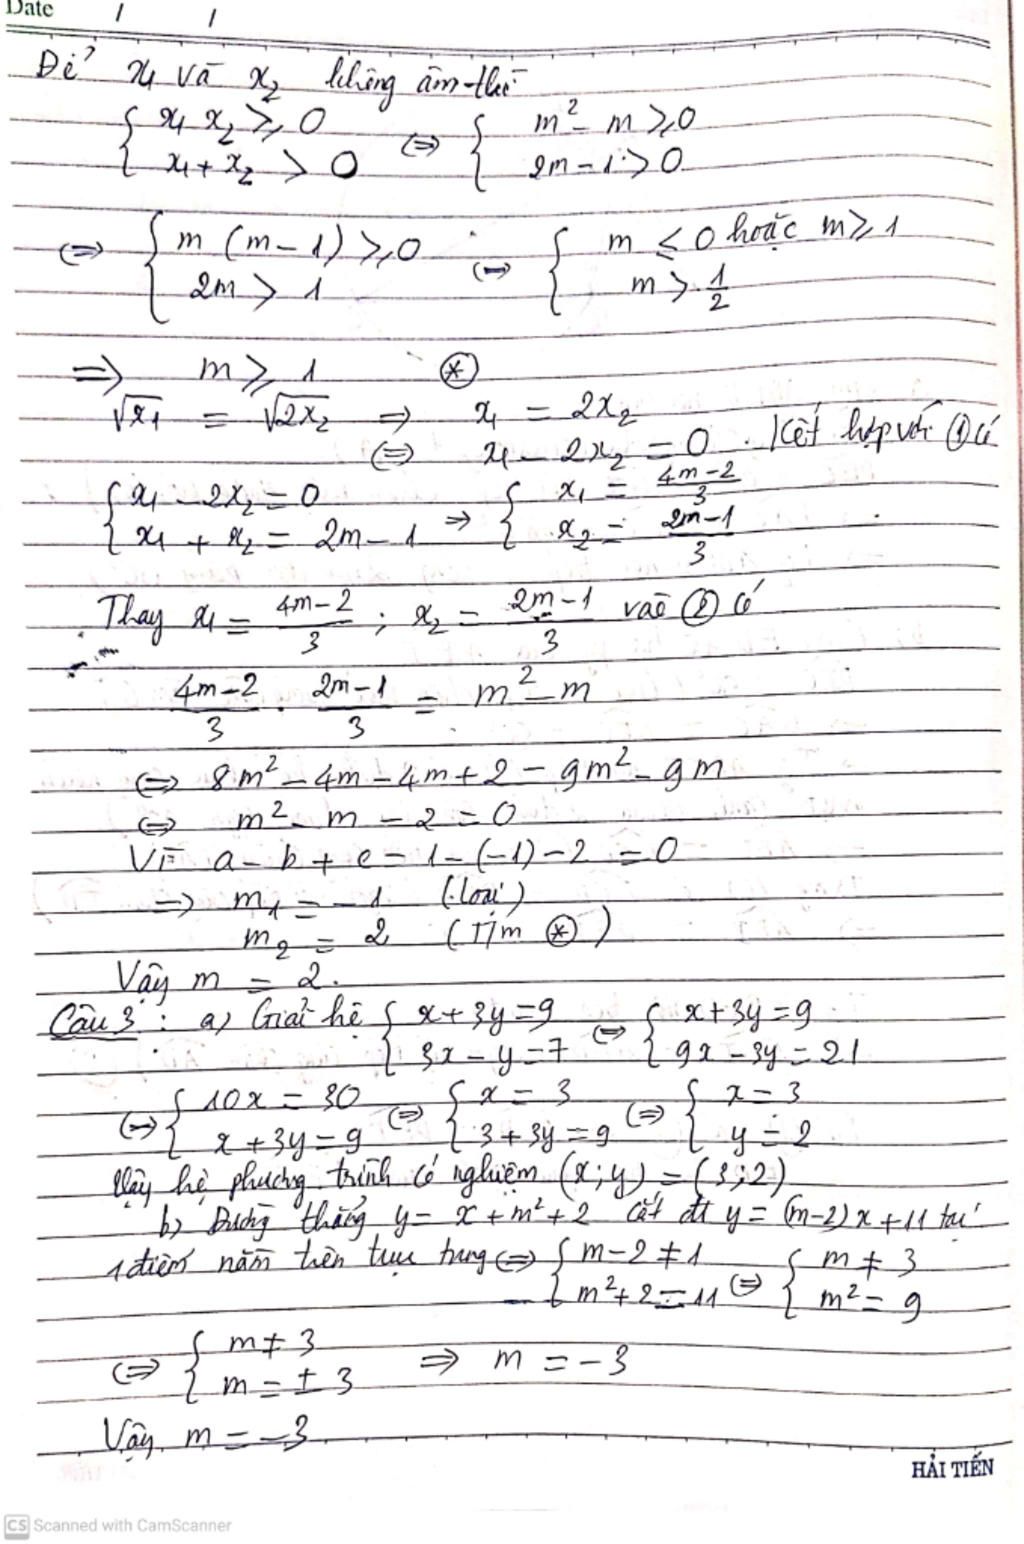 Date / /
Để x₁ và x₂ không âm thì
{ x₁ x₂ ⩾ 0 ⇔ { m² - m ⩾ 0
{ x₁ + x₂ > 0 { 2m - 1 > 0
⇔ { m (m - 1) ⩾ 0 ⇔ { m ≤ 0 hoặc m ⩾ 1
{ 2m > 1 { m > 1/2
⇒ m ⩾ 1 (*)
√x₁ = √2x₂ ⇒ x₁ = 2x₂
⇔ x₁ - 2x₂ = 0. Kết hợp với ① có
{ x₁ - 2x₂ = 0 ⇒ { x₁ = (4m-2)/3
{ x₁ + x₂ = 2m - 1 { x₂ = (2m-1)/3
Thay x₁ = (4m-2)/3 ; x₂ = (2m-1)/3 vào ② có
(4m-2)/3 . (2m-1)/3 = m² - m
⇔ 8m² - 4m - 4m + 2 = 9m² - 9m
⇔ m² - m - 2 = 0
Vì a - b + c = 1 - (-1) - 2 = 0
⇒ m₁ = -1 (loại)
m₂ = 2 (T/m (*))
Vậy m = 2.
Câu 3 : a) Giải hệ { x + 3y = 9 ⇔ { x + 3y = 9
{ 3x - y = 7 { 9x - 3y = 21
⇔ { 10x = 30 ⇔ { x = 3 ⇔ { x = 3
{ x + 3y = 9 { 3 + 3y = 9 { y = 2
Vậy hệ phương trình có nghiệm (x; y) = (3; 2)
b) Đường thẳng y = x + m² + 2 cắt đt y = (m-2) x + 11 tại
1 điểm nằm trên trục tung ⇔ { m - 2 ≠ 1 ⇔ { m ≠ 3
{ m² + 2 = 11 { m² = 9
⇔ { m ≠ 3 ⇒ m = -3
{ m = ± 3
Vậy m = -3
HẢI TIẾN
CS Scanned with CamScanner